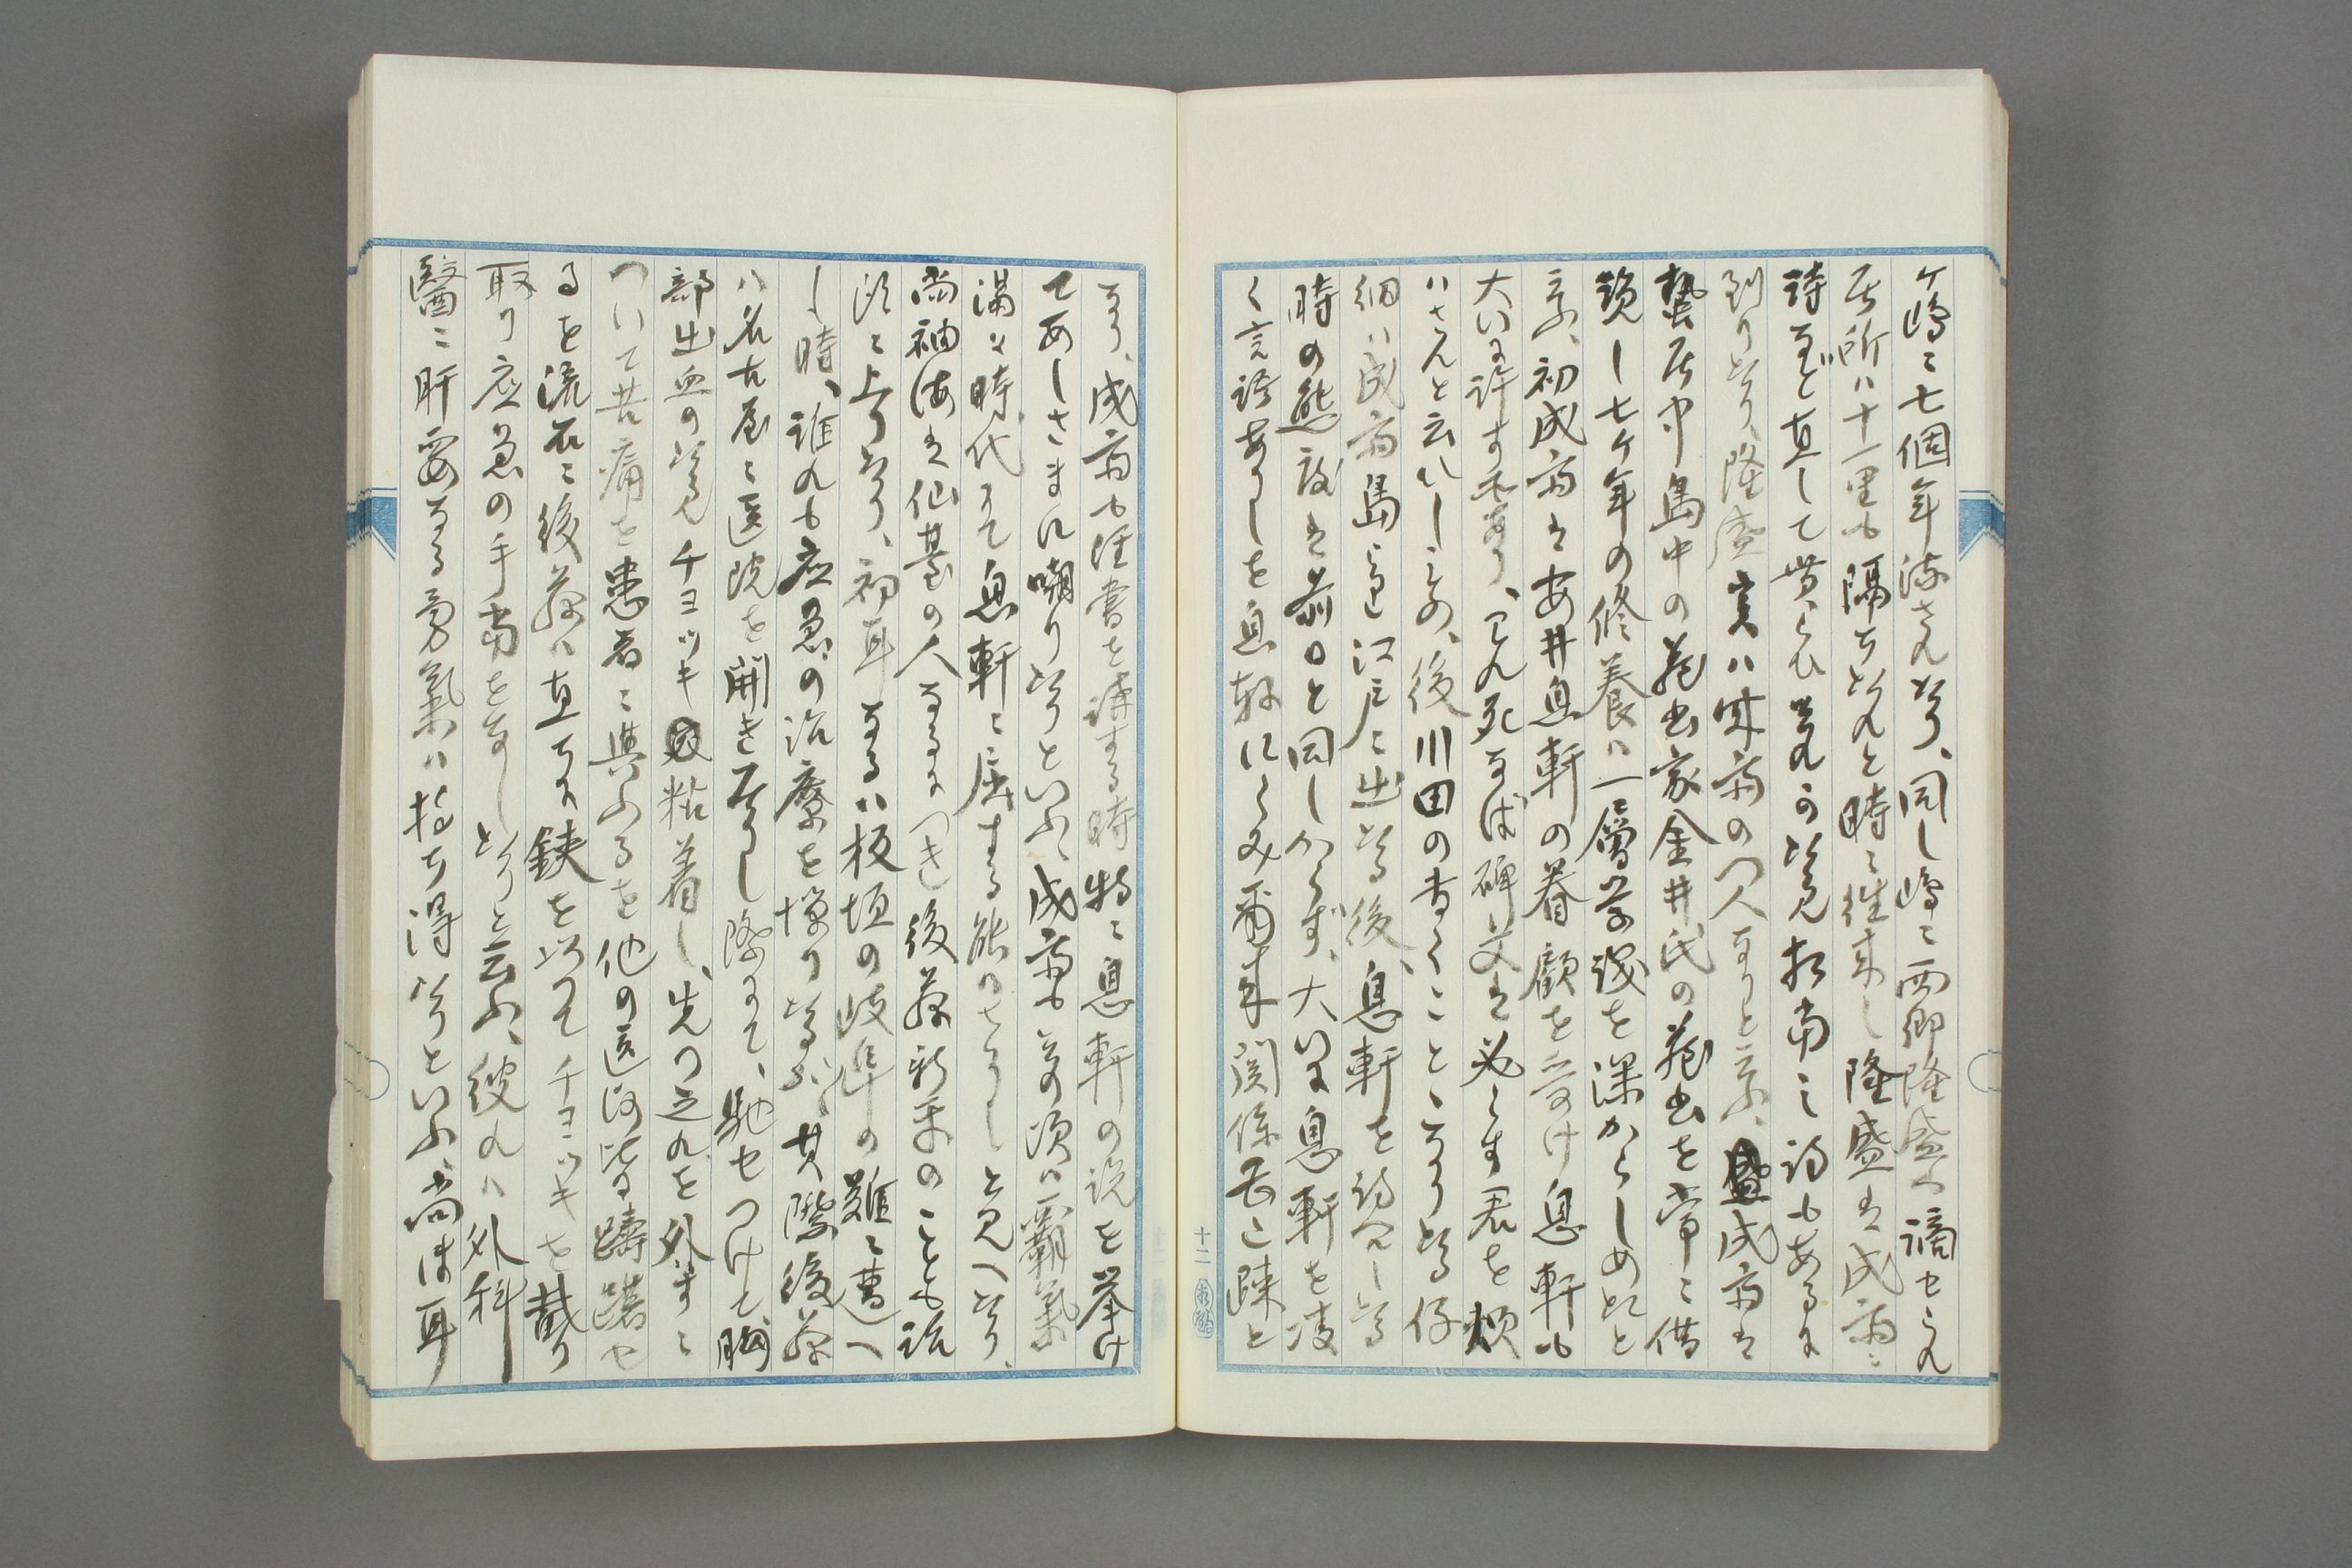 ケ嶋に七個年流され居り、同し嶋に西郷隆盛も謫せられ
居所ハ十一里も隔ち居れと時に往来し隆盛は成斎に
詩など直して貰らひ其の時見相当之詩もあるに
到り居り、隆盛実ハ成斎の門人なりと言ふ、成斎は
蟄居中島中の蔵書家金井氏の蔵書を常に借
覧し七ケ年の修養ハ一層学識を深からしめたと
言ふ、初成斎は安井息軒の眷顧を受け息軒も
大いに許す所あり、己れ死なば碑文は必らす君を頼
ハさんと云ひしもの、後川田の書くことゝなりたる仔
細ハ成斎島より江戸に出たる後、息軒を訪へし当
時の態度は前日と同しからず、大いに息軒を凌
く言語ありしを息軒にくみ爾来関係むしろ疎と
なり、成斎も経書を講する時特に息軒の説を挙け
てあしさまに嘲り居りといふ、成斎も若き頃ハ覇気
満々時代にて息軒に屈する能はさりしと見へたり、
尚袖海は仙台の人なるにつき後藤新平のことも話
次に上り居り、初耳なるハ板垣の岐阜の難に遭へ
し時、誰れも応急の治療を憚り居るが、其際後藤
ハ名古屋に医院を開き居りし際にて、馳せつけて、胸
部出血の為めチヨツキ粘着し、先つ之れを外すに
ついて苦痛を患者に与ふるを他の医師等躊躇せ
るを流石に後藤ハ直ちに鋏を以つてチヨツキを截り
取り応急の手当をなし居りと云ふ、彼れハ外科
醫に肝要なる勇氣ハ持ち得居りといふ、尚ほ耳
十二